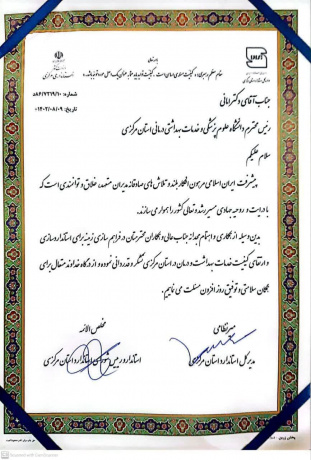 شماره: ۸۶/۷۲۱۹/۱۰د
تاریخ: ۱۴۰۲/۰۸/۰۹
جناب آقای دکتر امانی
رئیس محترم دانشگاه علوم پزشکی و خدمات بهداشتی درمانی استان مرکزی
سلام علیکم
پیشرفت ایران اسلامی مرهون افکار بلند و تلاش های صادقانه مدیران متعهد، خلاق و توانمندی است که
با درایت و روحیه جهادی مسیر رشد و تعالی کشور را هموار می سازند.
بدین وسیله از همکاری و اهتمام مجدانه جناب عالی و همکاران محترمتان در فراهم سازی زمینه برای استانداردسازی
و ارتقای کیفیت خدمات بهداشت و درمان در استان مرکزی تشکر و قدردانی نموده و از درگاه خداوند متعال برای
همگان سلامتی و توفیق روز افزون مسئلت می نماییم.
میر نظامی
مدیرکل استاندارد استان مرکزی
مخلص الائمه
استاندار و رییس شورای استاندارد استان مرکزی